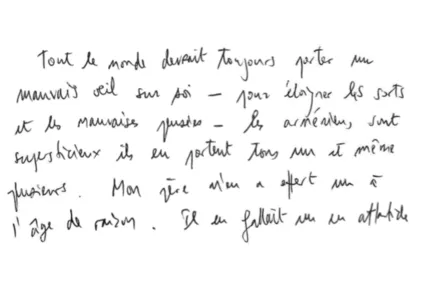 Tout le monde devrait toujours porter un
mauvais œil sur soi – pour éloigner les sorts
et les mauvaises pensées – les arméniens sont
supersticieux ils en portent tous un et même
plusieurs. Mon père m'en a offert un à
l'âge de raison. Il en fallait un en